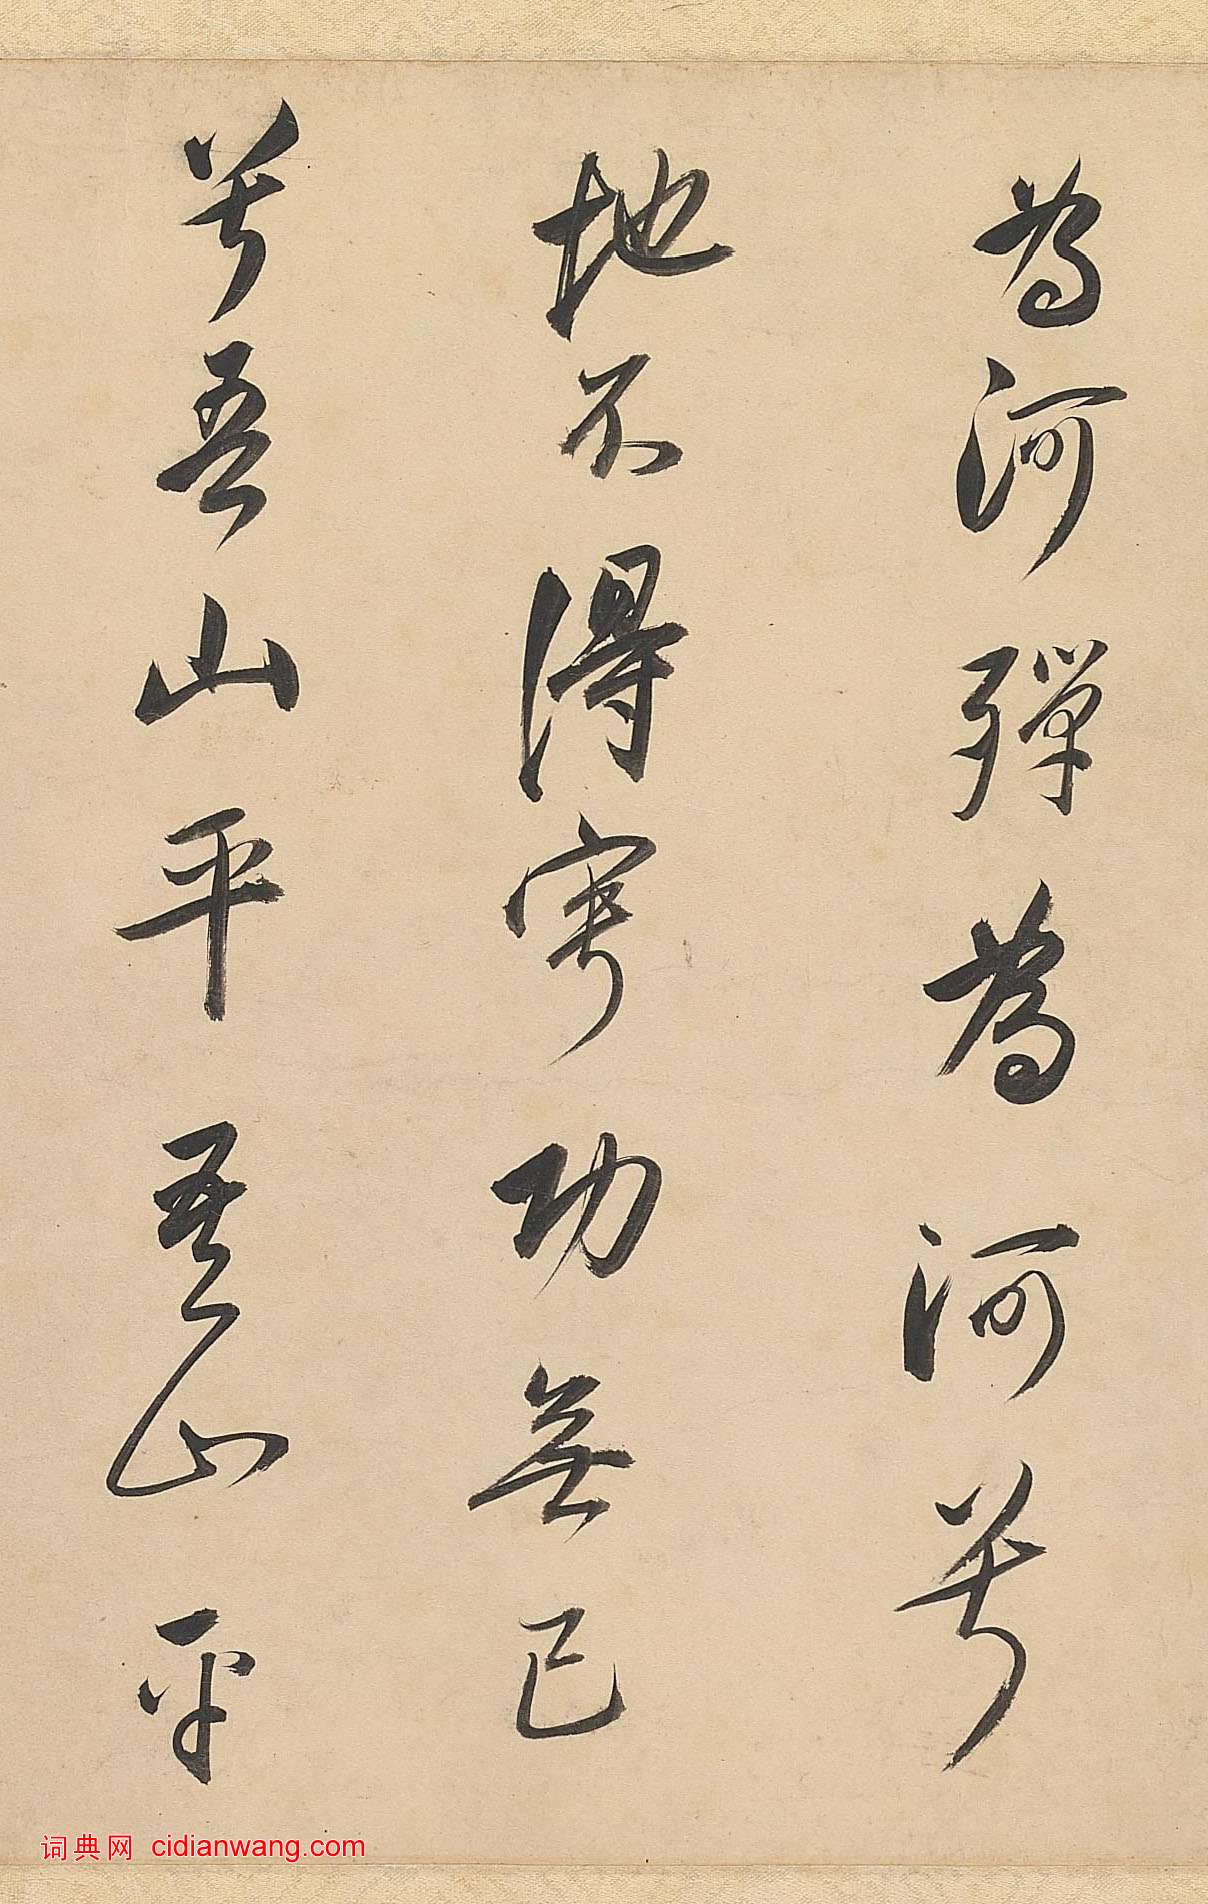 為河殫為河兮
地不得寧功無已
兮吾山平吾山平
词典网 cidianwang.com